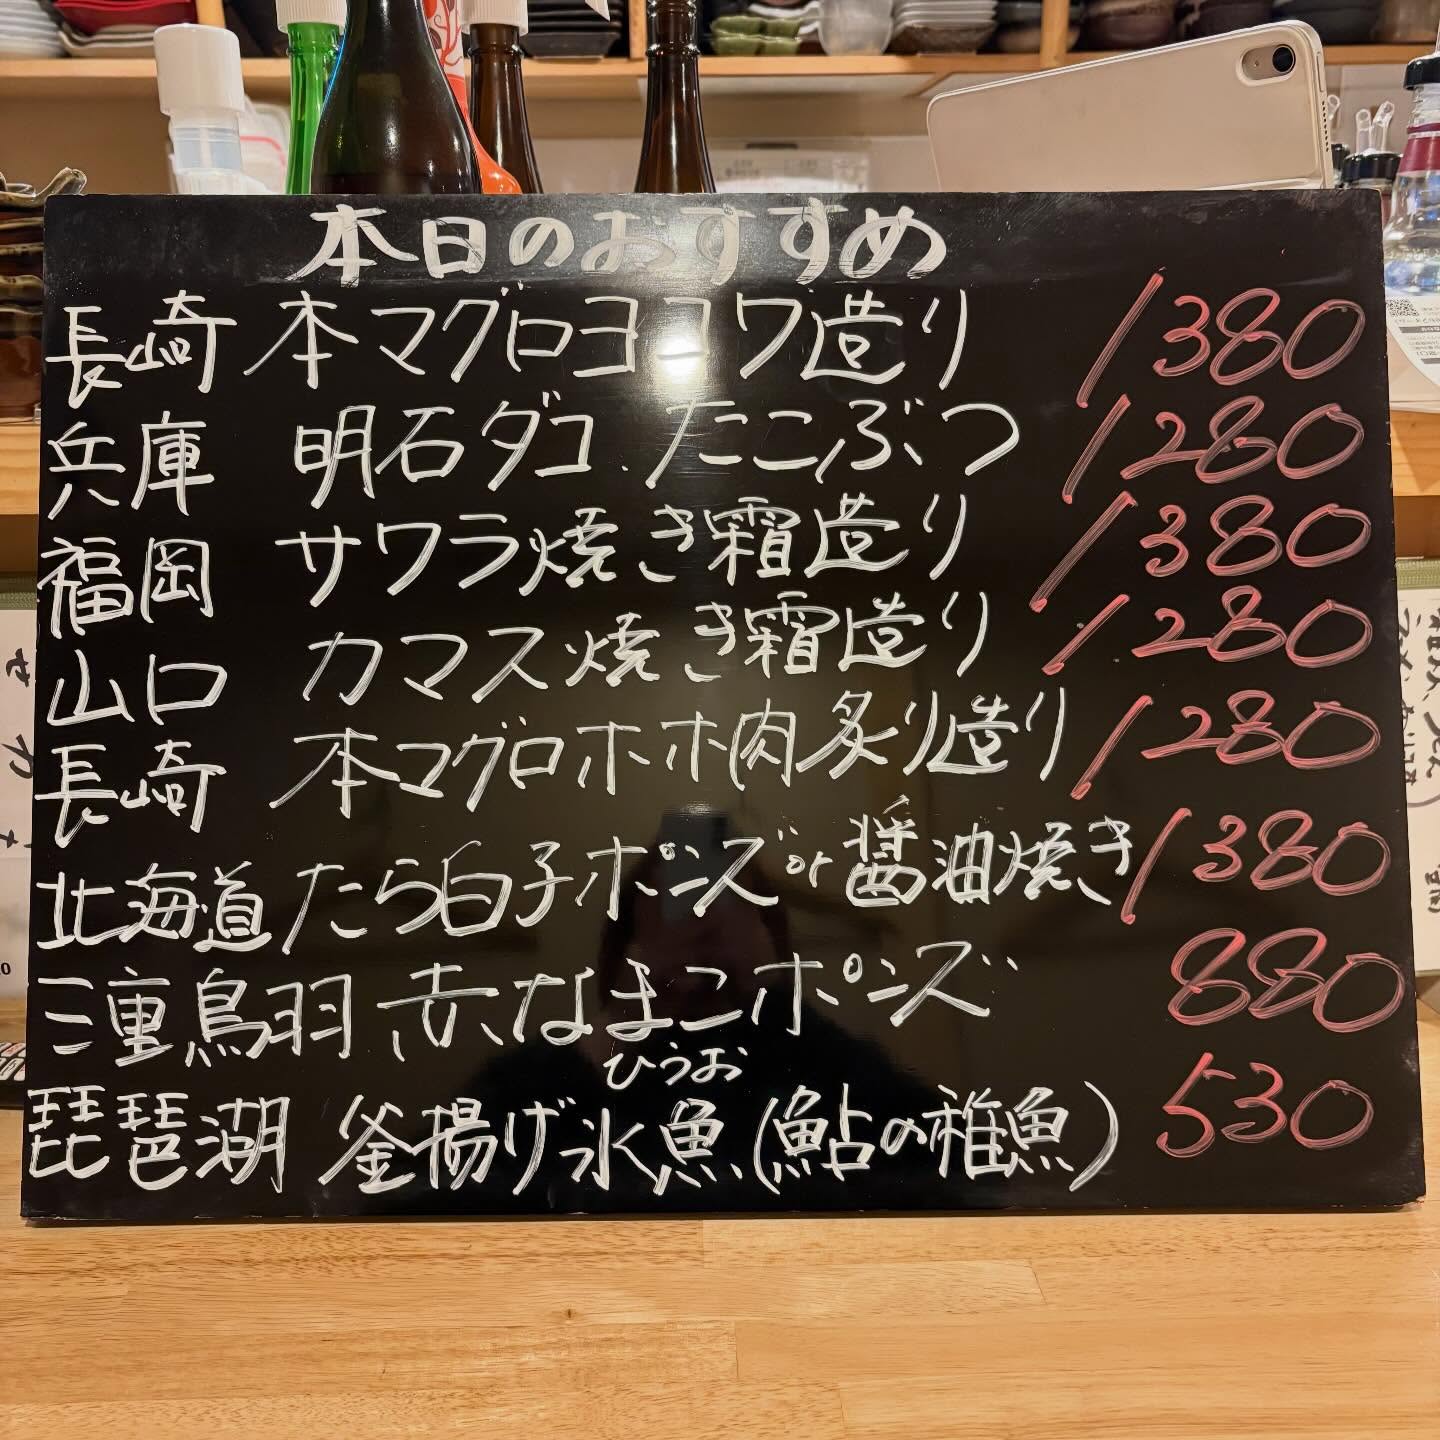 本日のおすすめ
長崎 本マグロヨコワ造り 1380
兵庫 明石ダコ たこぶつ 1280
福岡 サワラ焼き霜造り 1380
山口 カマス焼き霜造り 1280
長崎 本マグロホホ肉炙り造り 1280
北海道 たら白子ポンズor醤油焼き 1380
三重鳥羽 赤なまこポンズ 880
ひうお
琵琶湖 釜揚げ氷魚(鮎の稚魚) 530